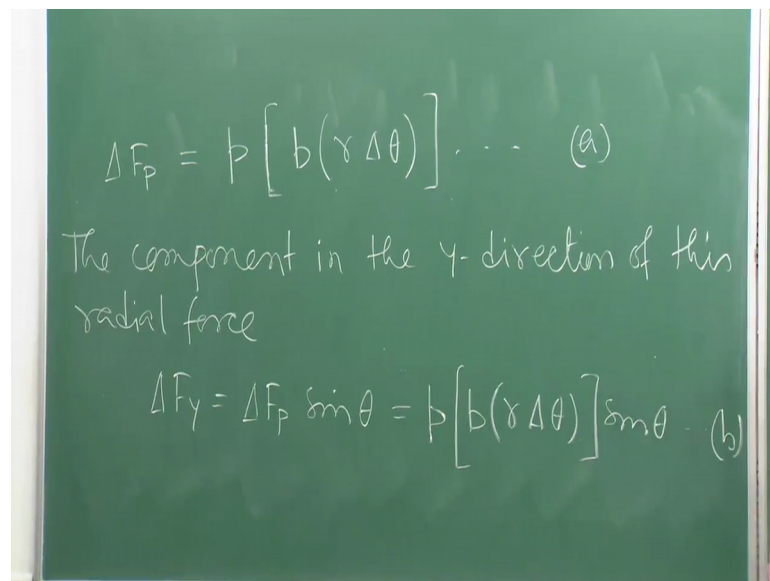 ΔFp = p[b(rΔθ)]. ... (a)
The component in the y-direction of this
radial force
ΔFy = ΔFp sinθ = p[b(rΔθ)]sinθ - (b)